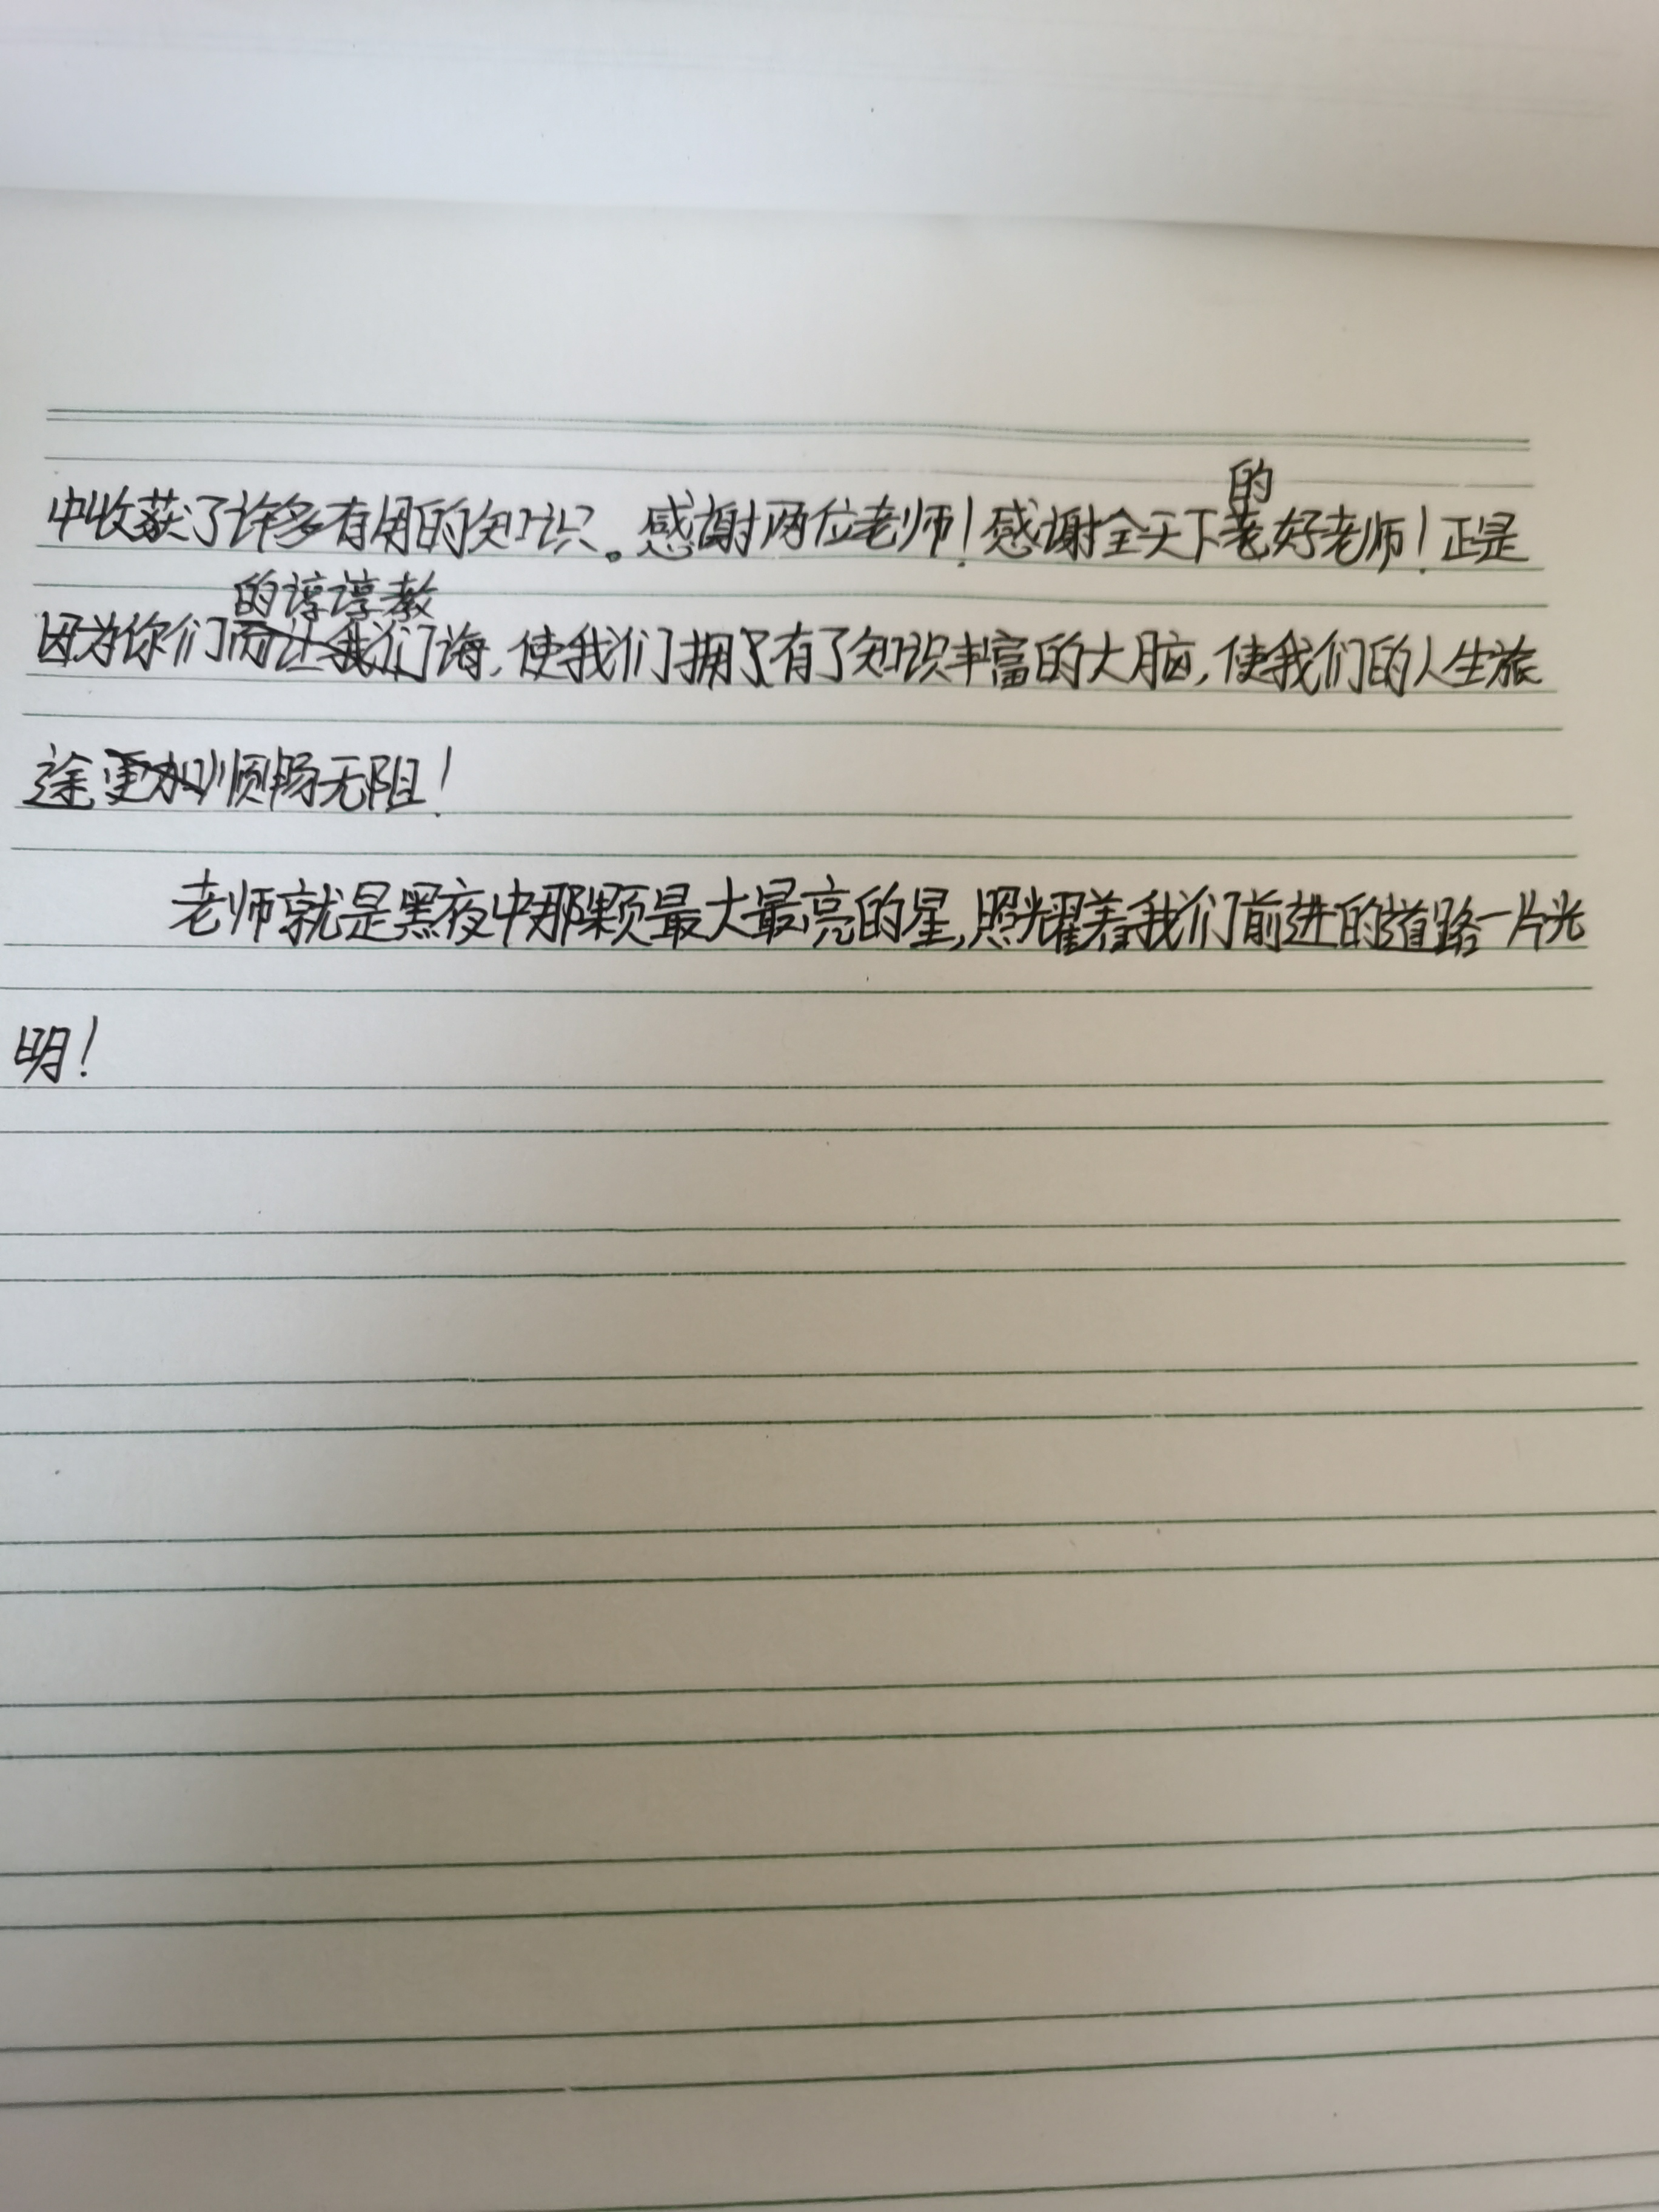 中收获了许多有用的知识。感谢两位老师！感谢全天下的好老师！正是
因为你们的谆谆教诲，使我们拥有了知识丰富的大脑，使我们的人生旅
途更加顺畅无阻！
老师就是黑夜中那颗最大最亮的星，照耀着我们前进的道路一片光
明！